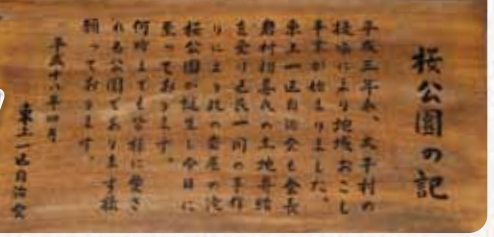 桜公園の記
平成三年春、大平村の
提唱により地域おこし
事業が始まりました。
東上一区自治会も会長
岩村初善氏の土地寄給
を受け区民一同の手作
りにより花の公園の
桜公園が誕生し今日に
至っております。
何時までも皆様に愛さ
れる公園であります様
願っております。
平成十八年四月
東上一区自治会